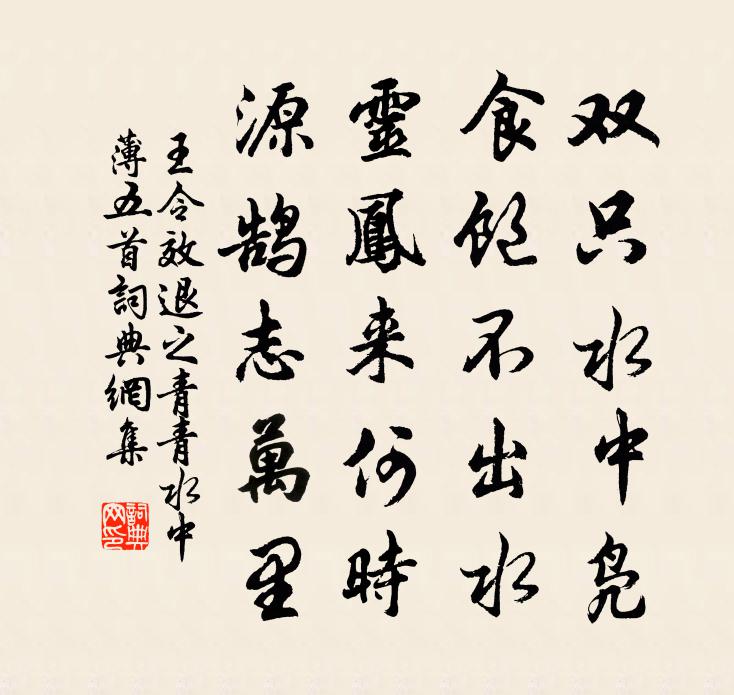 双只水中凫
食饱不出水
靈鳳来何時
源鹄志萬里
王令效退之青青水中
薄五首詞典網集
詞典
网印